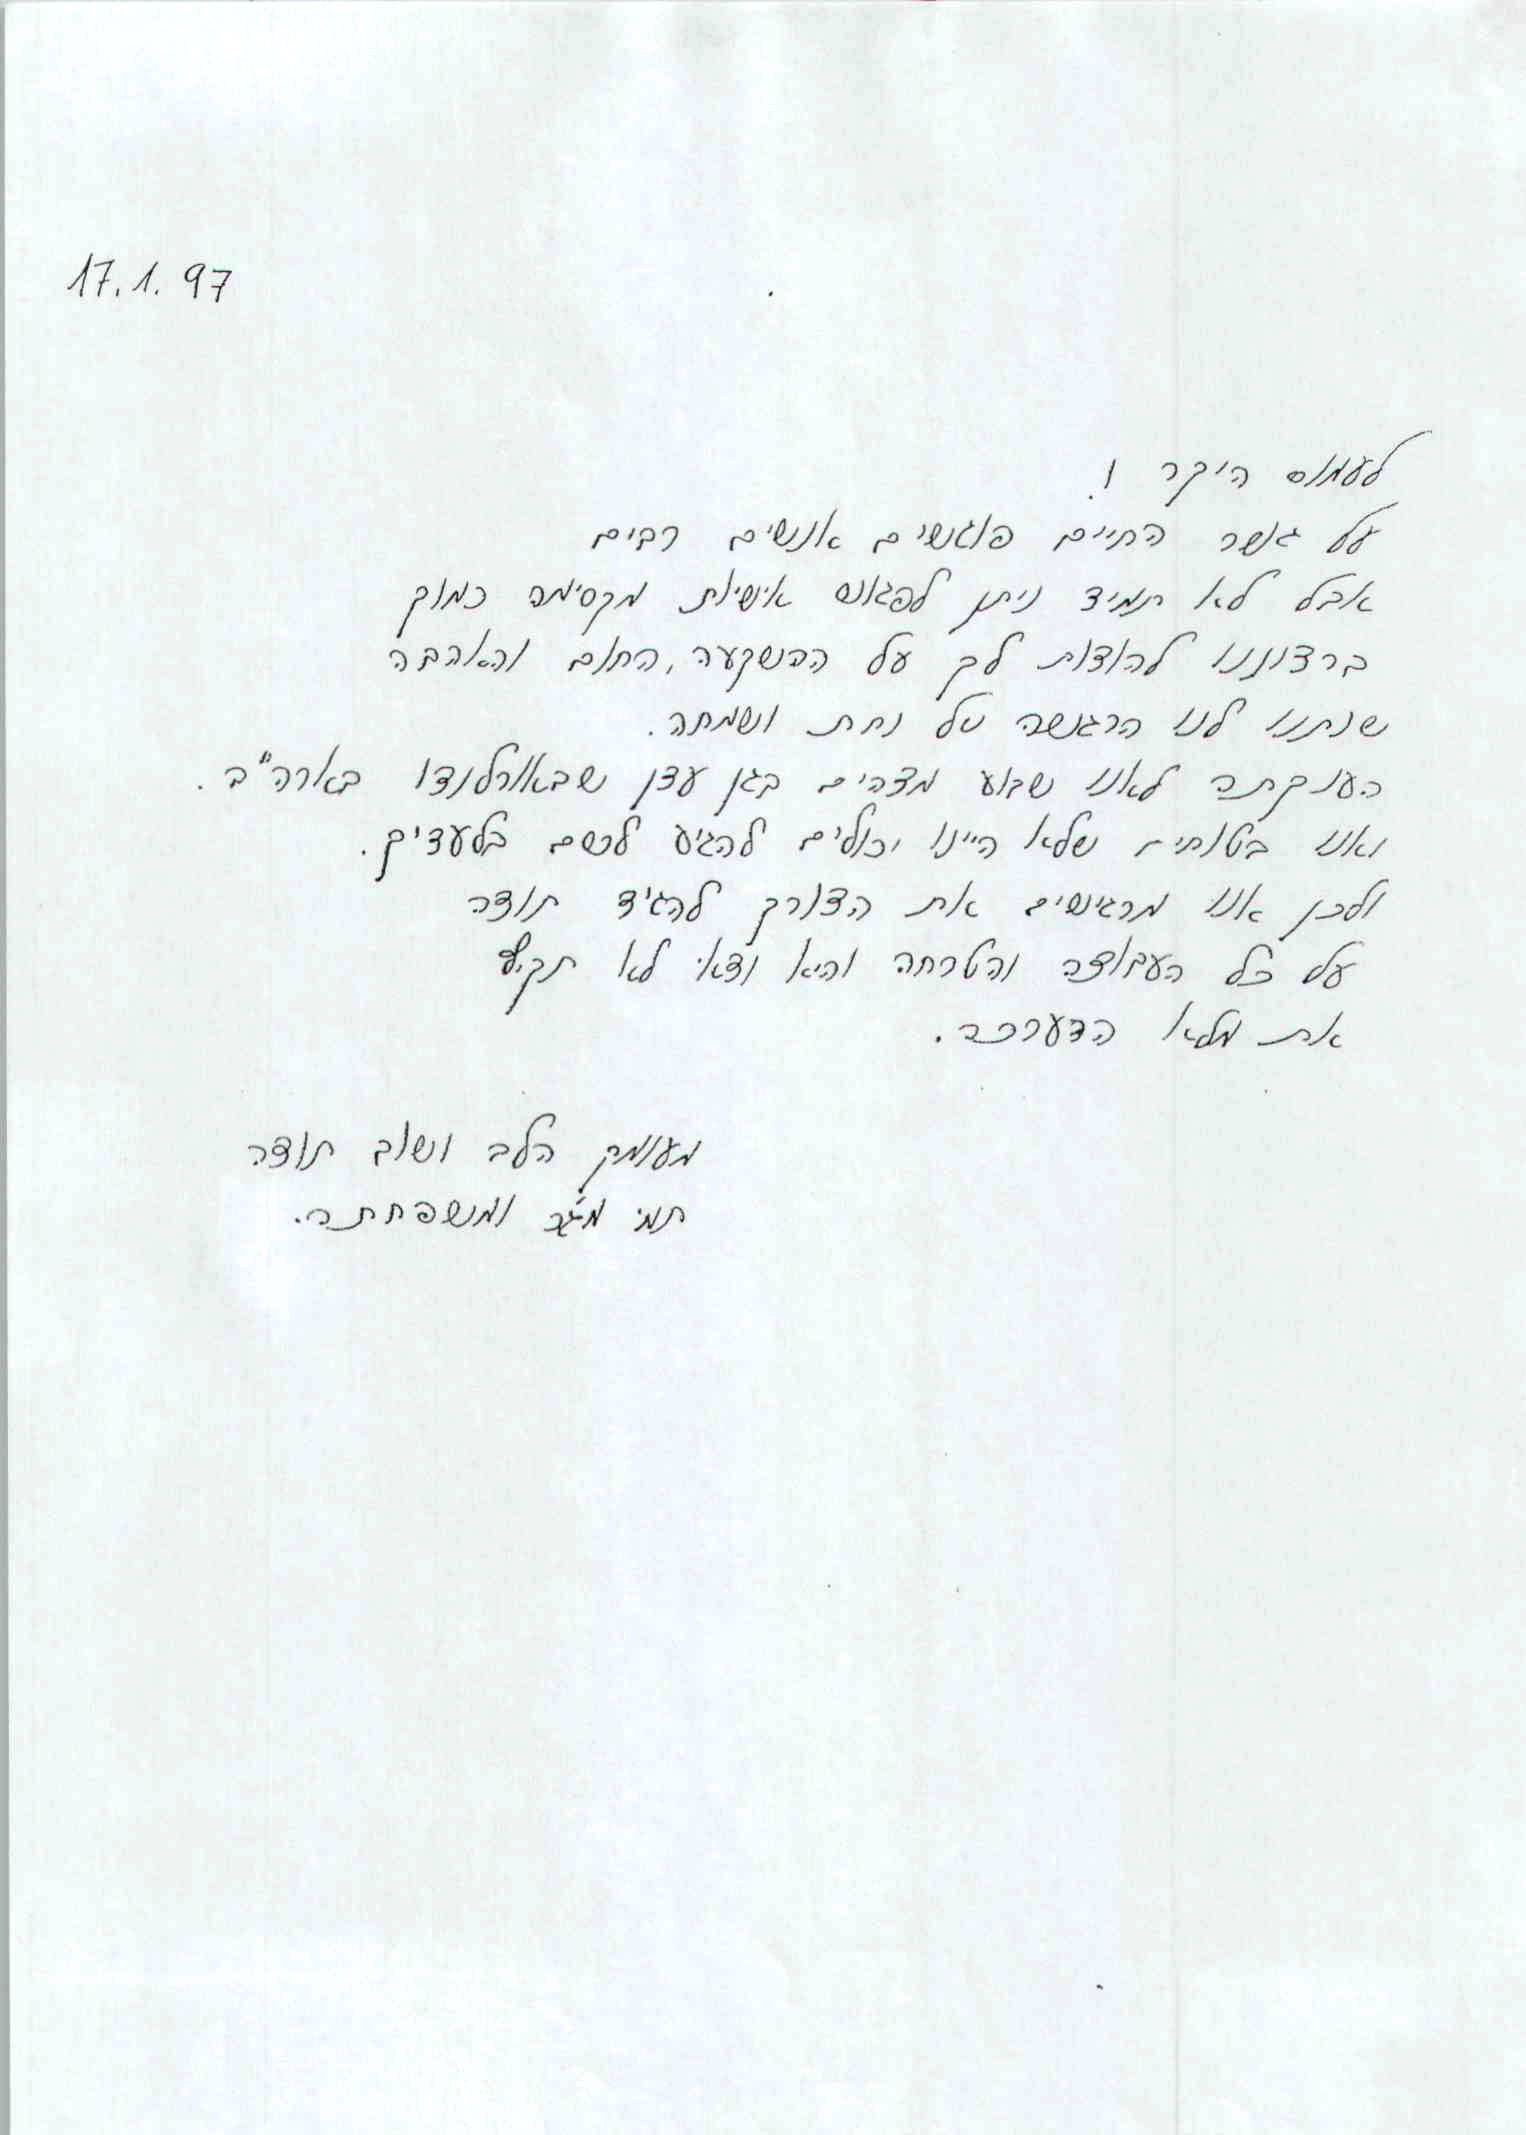 17.1.97
לעמוס היקר !
על גשר החיים פוגשים אנשים רבים
אבל לא תמיד ניתן לפגוש אישיות מקסימה כמוך
ברצוננו להודות לך על ההשקעה, החום והאהבה
שנתנו לנו הרגשה של נחת ושמחה.
הענקתה לאנו שבוע מדהים בגן עדן שבאורלנדו בארה"ב.
ואנו בטוחים שלא היינו יכולים להגיע לשם בלעדיך.
ולכן אנו מרגישים את הצורך להגיד תודה
על כל העבודה והטרחה והיא ודאי לא תקיף
את מלא ההערכה.
מעומק הלב ושוב תודה
תמי ומשפחתה.